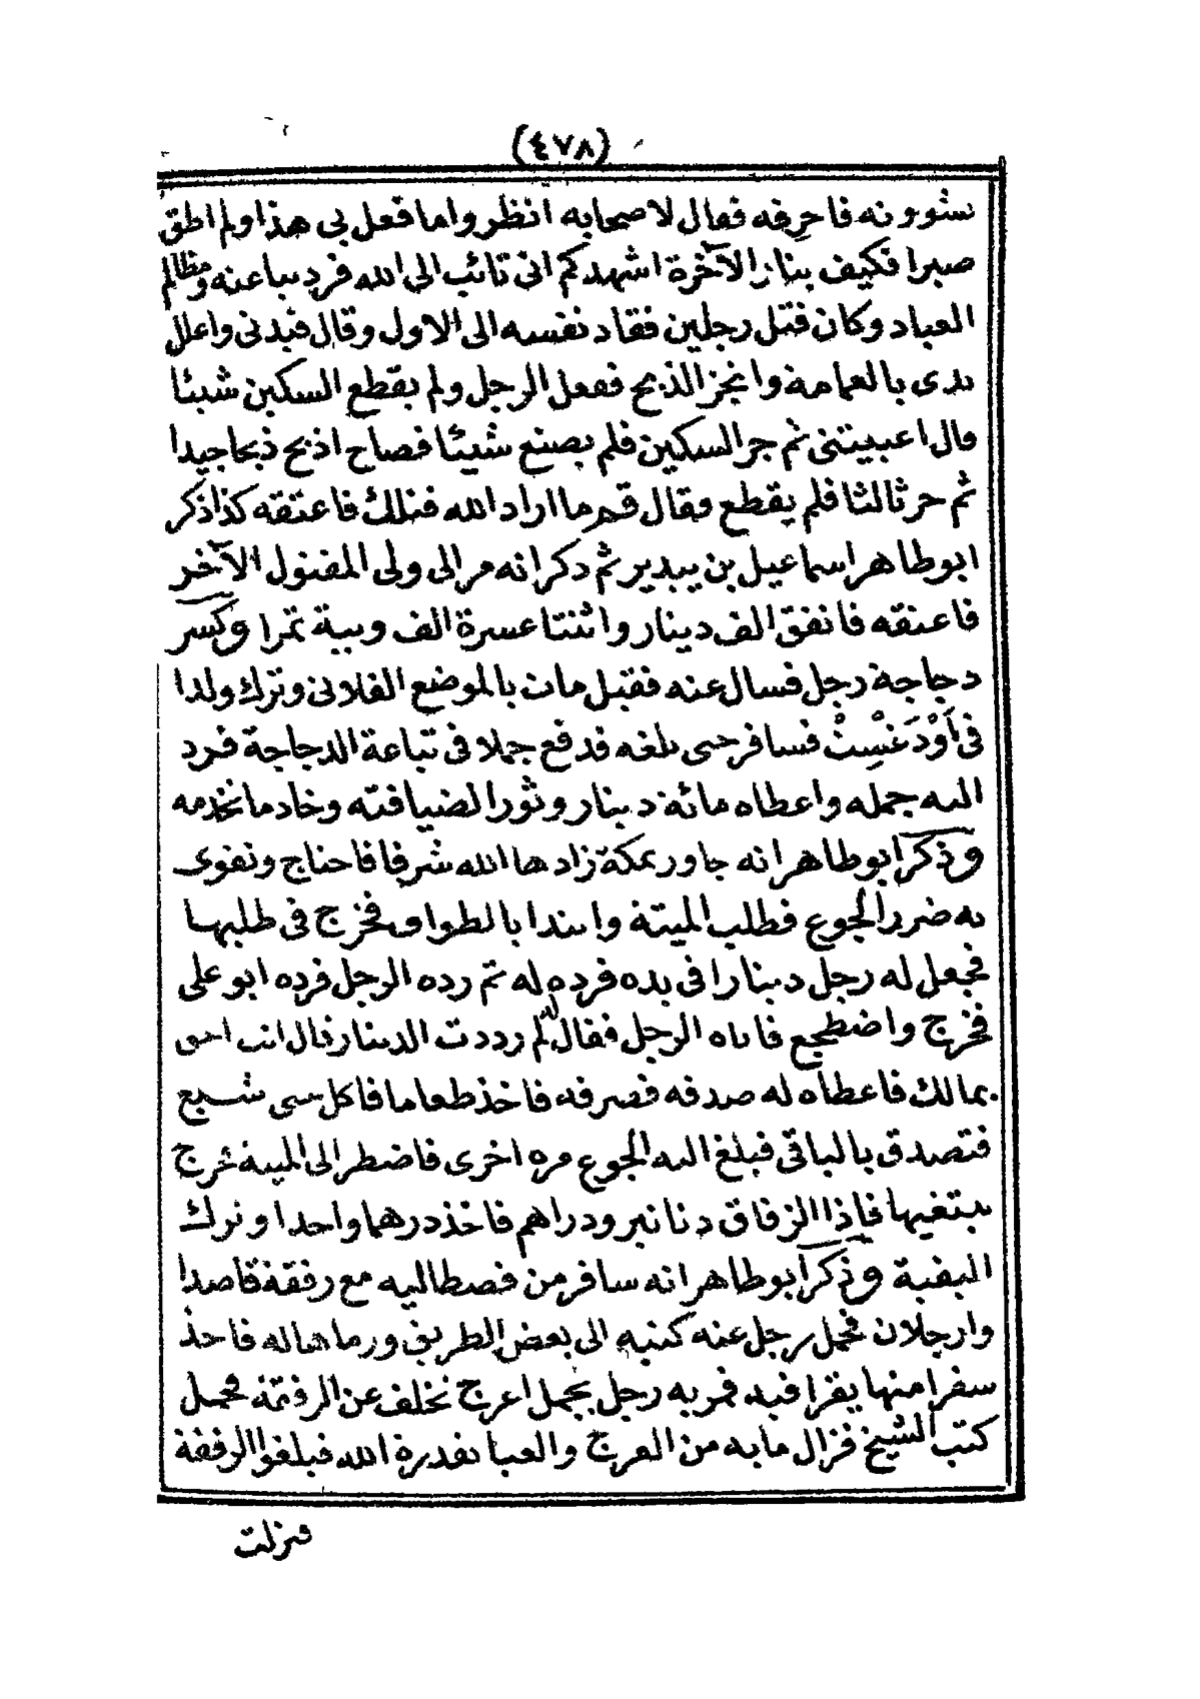 (٤٧٨)
يشوونه فاحرقه فقال لاصحابه انظروا ما فعل بي هذا ولم اطق
صبرا فكيف بنار الآخرة اشهدكم اني تائب الى الله فرد تباعته ومظالم
العباد وكان قتل رجلين فقاد نفسه الى الاول وقال قيدني واغلل
يدي بالعمامة وانجز الذبح ففعل الرجل ولم يقطع السكين شيئا
قال اعييتني ثم جر السكين فلم يصنع شيئا فصاح اذبح ذبحا جيدا
ثم جر ثالثا فلم يقطع وقال قم ما اراد الله قتلك فاعتقه كذا ذكر
ابو طاهر اسماعيل بن ييدير ثم ذكر انه مر الى ولي المقتول الآخر
فاعتقه فانفق الف دينار واثنتا عسرة الف ويبة تمرا وكسر
دجاجة رجل فسال عنه فقيل مات بالموضع الفلاني وترك ولدا
في أَوْدَغَسِتْ فسافر حتى بلغه قد دفع جملا في تباعة الدجاجة فرد
اليه جمله واعطاه مائة دينار وثورا لضيافته وخادما تخدمه
وذكر ابو طاهر انه جاور بمكة زادها الله شرفا فاحتاج وتقوى
به ضرر الجوع فطلب الميتة وابتدا بالطواف فخرج في طلبها
فجعل له رجل دينارا في يده فرده له ثم رده الرجل فرده ابو علي
فخرج واضطجع فاتاه الرجل فقال له لم رددت الدينار قال انت احق
بمالك فاعطاه له صدقه فصرفه فاخذ طعاما فاكل حتى شبع
فتصدق بالباقي فبلغ اليه الجوع مره اخرى فاضطر الى الميتة فخرج
يبتغيها فاذا الزقاق دنانير ودراهم فاخذ درهما واحدا وترك
البقية وذكر ابو طاهر انه سافر من قصطاليه مع رفقة قاصدا
وارجلان فحمل رجل عنه كتبه الى بعض الطريق ورماها له فاخذ
سفرا منها يقرا فيه فمر به رجل بجمل اعرج تخلف عن الرفقة فحمل
كتب الشيخ فزال ما به من العرج والعيا بقدرة الله فبلغوا الرفقة
فنزلت